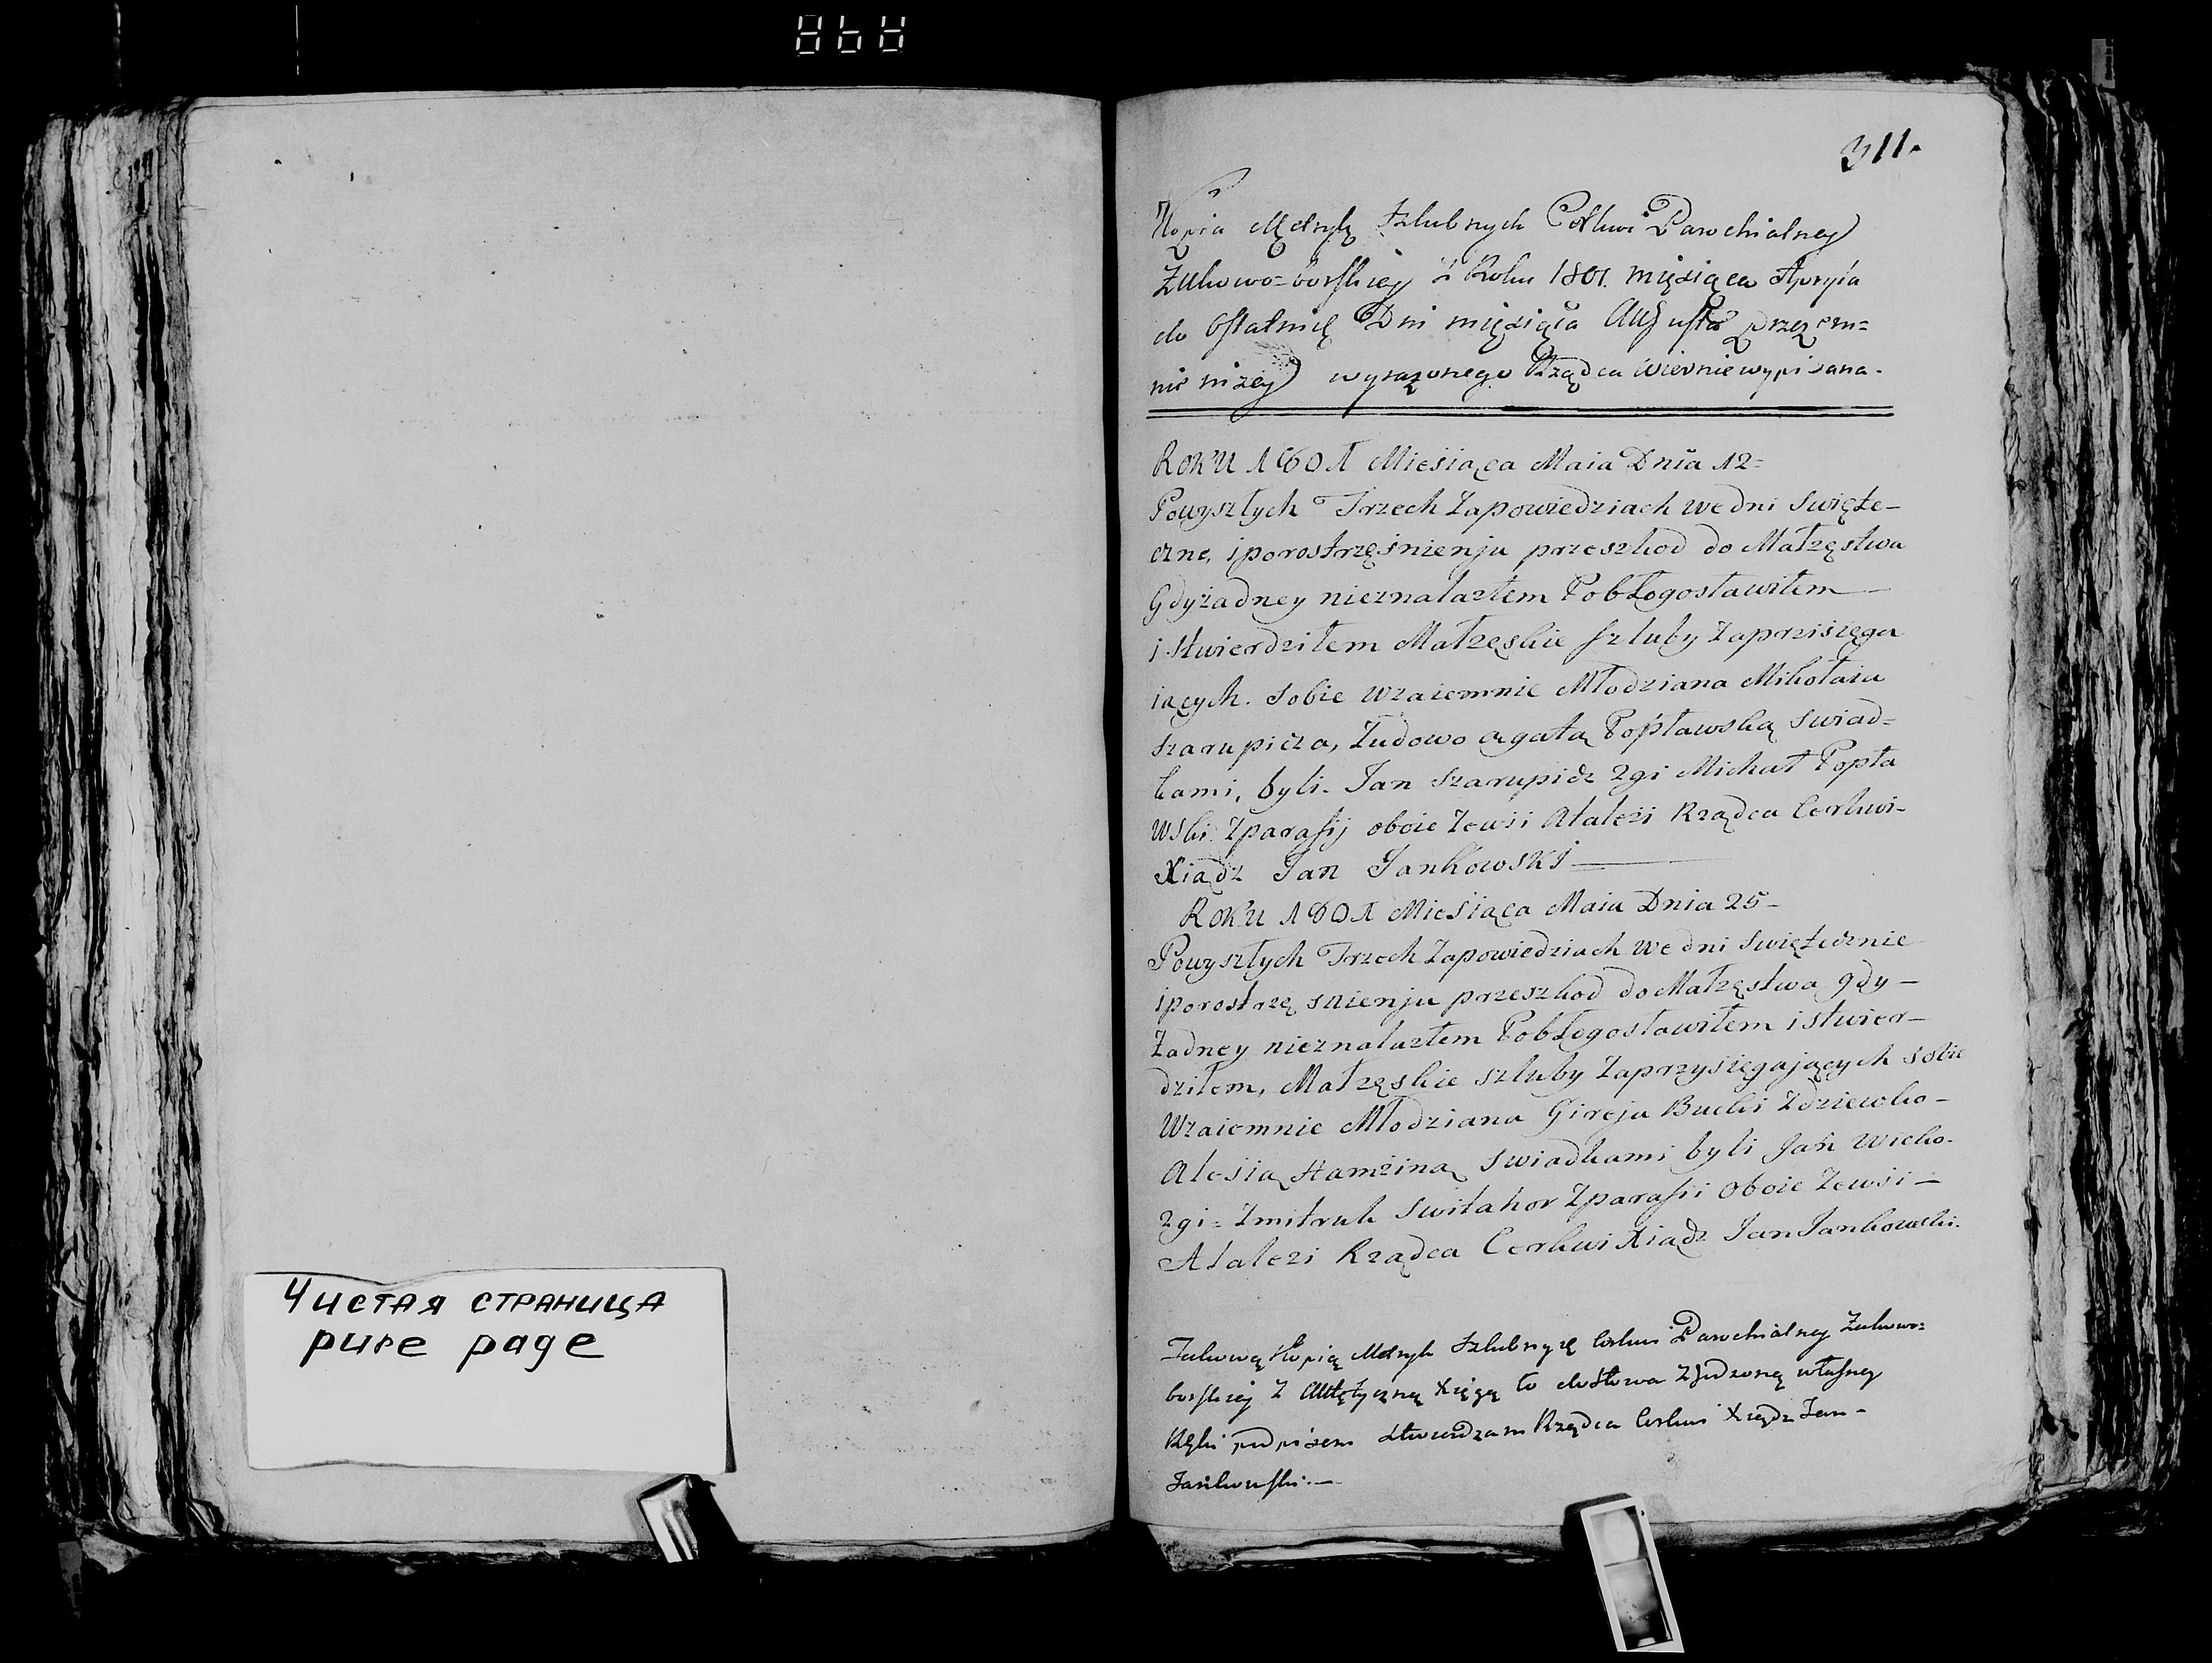 Чистая страница
pure page
311.
Kopia Metryk Szlubnych Cerkwi Parochialney
Żukowo=borskiey z Roku 1801. Miesiąca
do Ostatnich Dni miesiąca Augusta przezem=
nie niżey wyrażonego Rządca wiernie wypisana.
ROKU 1801 Miesiąca Maia Dnia 12=
Powyszłych Trzech Zapowiedziach we dni Swięte-
czne, iporostrzęśnienju przeszkod do Małzęstwa
Gdyżadney nieznalazłem Pobłogosławiłem
i stwierdziłem Małzęskie szluby Zaprzisięga
iących. Sobie Wzaiemnie Młodziana Mikołaia
Szarupicza, Zudowo Agatą Popławską Swiad=
kami, byli. Jan Szarupicz 2gi Michał Popła
wski Zparafij oboie Zewsi Atalezi Rządca Cerkwi-
Xiądz Jan Jankowski
ROKU 1801 Miesiąca Maia Dnia 25-
Powyszłych Trzech Zapowiedziach We dni Swiętecznie
iporostrzę snienju przeszkod do Małzęstwa gdy-
Żadney nieznalazłem Pobłogosławiłem i stwier-
dziłem, Małzęskie szluby Zaprzysięgających Sobie
Wzaiemnie Młodziana Gireja Bucki Zdziewko-
Alesią Hamziną Swiadkami byli Jan Wicko-
2gi= Zmitruk Switahor Zparafii oboie Zewsi-
Atalezi Rządca Cerkwi Xiądz Jan Jankowski.
Takową Kopią Metryk Szlubnych Cerkwi Parochialney Żukowo=
borskiey z Autętyczną Xięgą co do słowa Zgodzoną własney
Ręki podpisem stwierdzam Rządca Cerkwi Xiądz Jan-
Jankowski.-